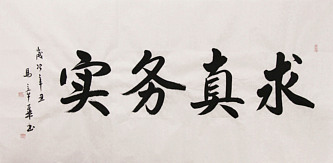 求真务实
岁次辛丑
马